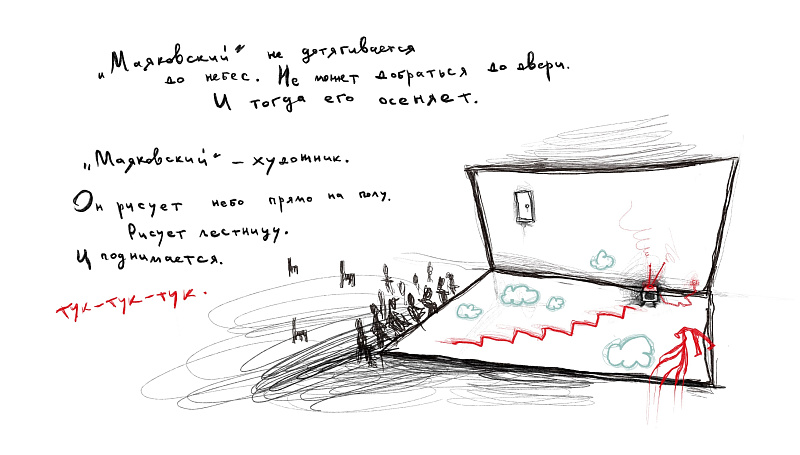 „Маяковский“ не дотягивается
до небес. Не может добраться до двери.
И тогда его осеняет.
„Маяковский“ – художник.
Он рисует небо прямо на полу.
Рисует лестницу.
И поднимается.
тук-тук-тук.